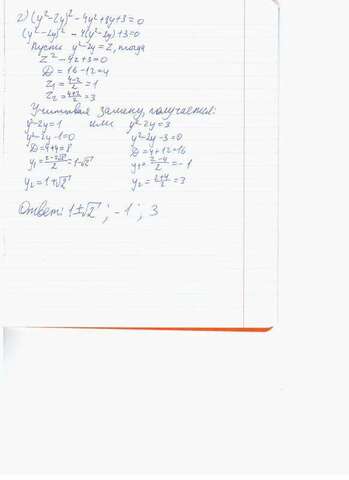 2) (y²-2y)² - 4y²+8y+3=0
(y²-2y)² - 4(y²-2y)+3=0
Пусть y²-2y=z, тогда
z² - 4z+3=0
D = 16-12=4
z₁ = (4-2)/2 = 1
z₂ = (4+2)/2 = 3
Учитывая замену, получаем:
y²-2y=1 или y²-2y=3
y²-2y-1=0 y²-2y-3=0
D=4+4=8 D=4+12=16
y₁ = (2-2√2)/2 = 1-√2 y₁ = (2-4)/2 = -1
y₂ = 1+√2 y₂ = (2+4)/2 = 3
Ответ: 1±√2; -1; 3